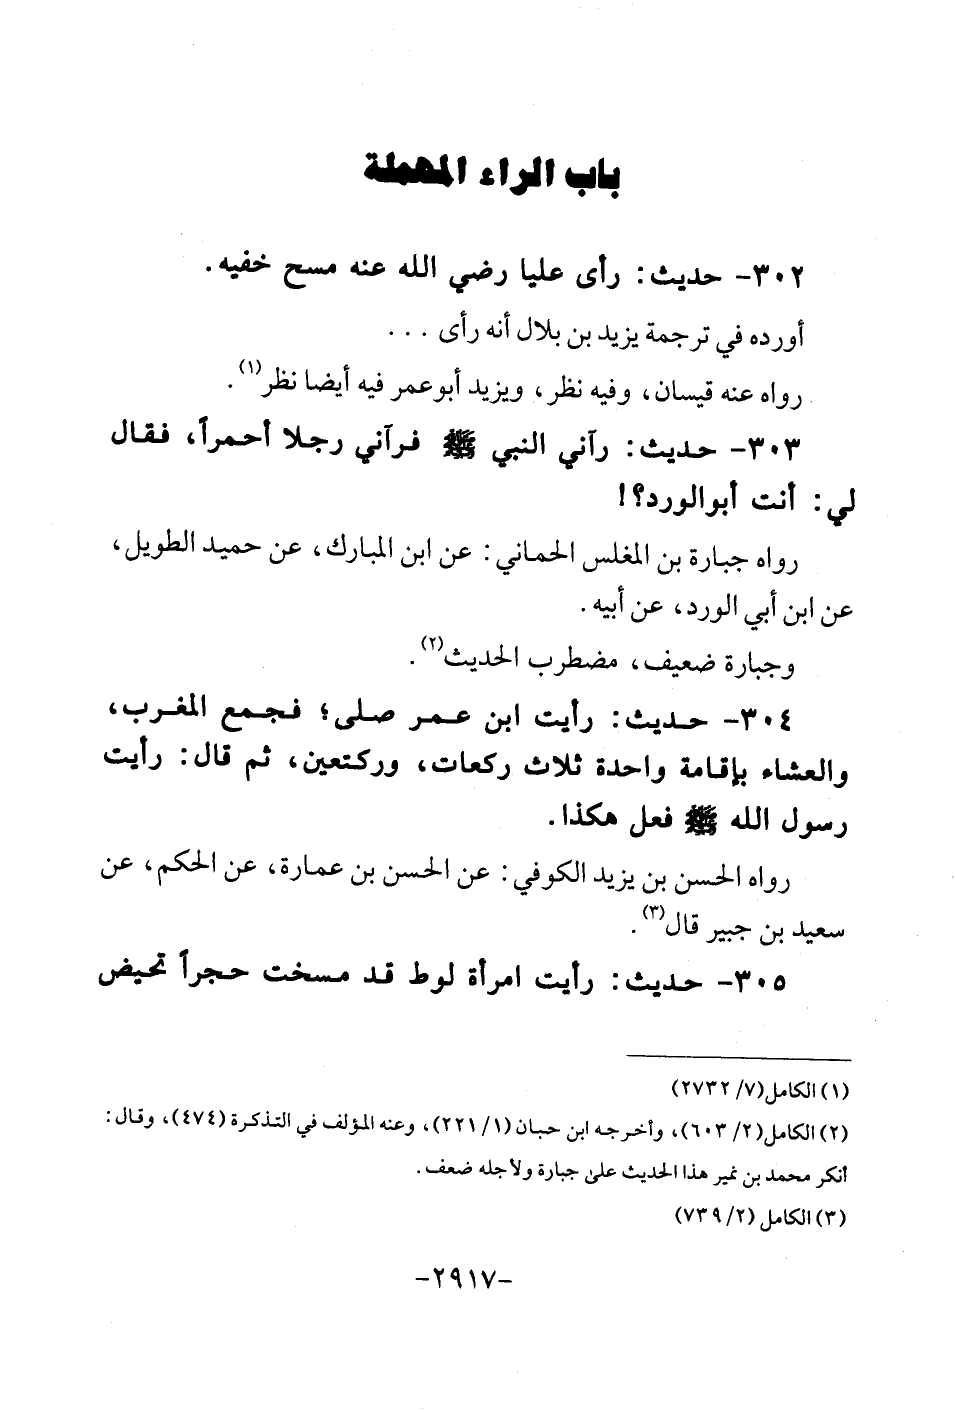 باب الراء المهملة
٣٠٢- حديث: رأى عليا رضي الله عنه مسح خفيه.
أورده في ترجمة يزيد بن بلال أنه رأى . . .
رواه عنه قيسان، وفيه نظر، ويزيد أبوعمر فيه أيضا نظر(١).
٣٠٣- حديث: رآني النبي ﷺ فرآني رجلا أحمراً، فقال
لي: أنت أبوالورد؟!
رواه جبارة بن المغلس الحماني: عن ابن المبارك، عن حميد الطويل،
عن ابن أبي الورد، عن أبيه.
وجبارة ضعيف، مضطرب الحديث(٢).
٣٠٤- حديث: رأيت ابن عمر صلى؛ فجمع المغرب،
والعشاء بإقامة واحدة ثلاث ركعات، وركتعين، ثم قال: رأيت
رسول الله ﷺ فعل هكذا.
رواه الحسن بن يزيد الكوفي: عن الحسن بن عمارة، عن الحكم، عن
سعيد بن جبير قال(٣).
٣٠٥- حديث: رأيت امرأة لوط قد مسخت حجراً تحيض
(١) الكامل(٧/ ٢٧٣٢)
(٢) الكامل(٢/ ٦٠٣)، وأخرجه ابن حبان (١/ ٢٢١)، وعنه المؤلف في التذكرة (٤٧٤)، وقال:
أنكر محمد بن نمير هذا الحديث على جبارة ولأجله ضعف.
(٣) الكامل (٢/ ٧٣٩)
-٢٩١٧-